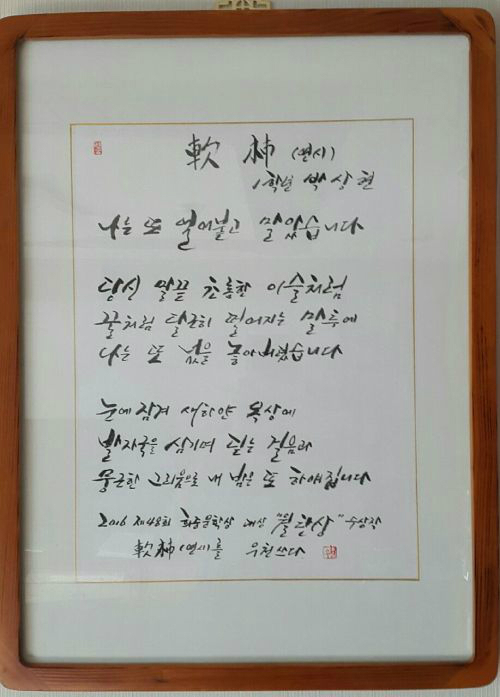 軟柿 (연시)
1학년 박상현
나는 또 얼어붙고 말았습니다
당신 말끝 초롱한 이슬처럼
꿀처럼 달큰히 떨어지는 말투에
나는 또 넋을 놓아버렸습니다
눈에 잠겨 새하얀 옥상에
발자국을 심기며 딛는 걸음과
뭉근한 그리움으로 내 밤은 또 하얘집니다
2016 제48회 화홍문학상 대상 "월단상" 수상작
軟柿 (연시)를 우천 쓰다